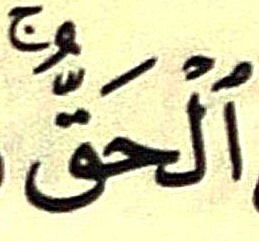 ٱلْحَقُّۚ